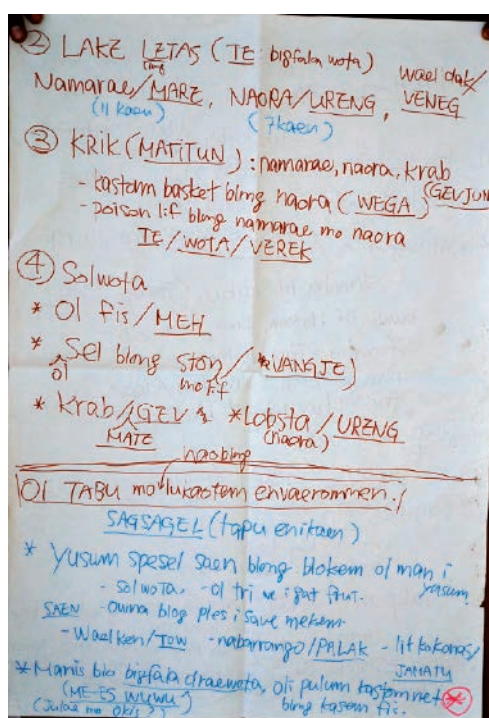 ② LAKE LETAS (TE bigfala wota)
Wael dak/
Namarae/MARE, NAORA/URENG, VENEG
(11 kaen) (7 kaen)
③ KRIK (MATITUN) : namarae, naora, krab
(GEVJUN
- kastom basket blong naora (WEGA)
- poison lif blong namarae mo naora
TE/WOTA/VEREK
④ Solwota
* Ol fis/MEH
* ol Sel blong ston/*VANGJE)
mo rif
* Krab/GEV & *Lobsta/URENG
MATE (naora)
naoblong
Ol TABU mo lukaotem envaerommen :/
SAGSAGEL (tapu enikaen)
* Yusum spesel saen blong blokem ol man i yasum
- solwota, - ol tri we i gat frut.
SAEN - Owna blog ples i save mekem.
- Waelken/TOW - nabarrango/PALAK - lif kokonas/
JAMATU
* Manis blo bigfala draewota, oli pulum kastom net
(ME-ES WUWU) blong kasem fis.
(Julae mo Okis)